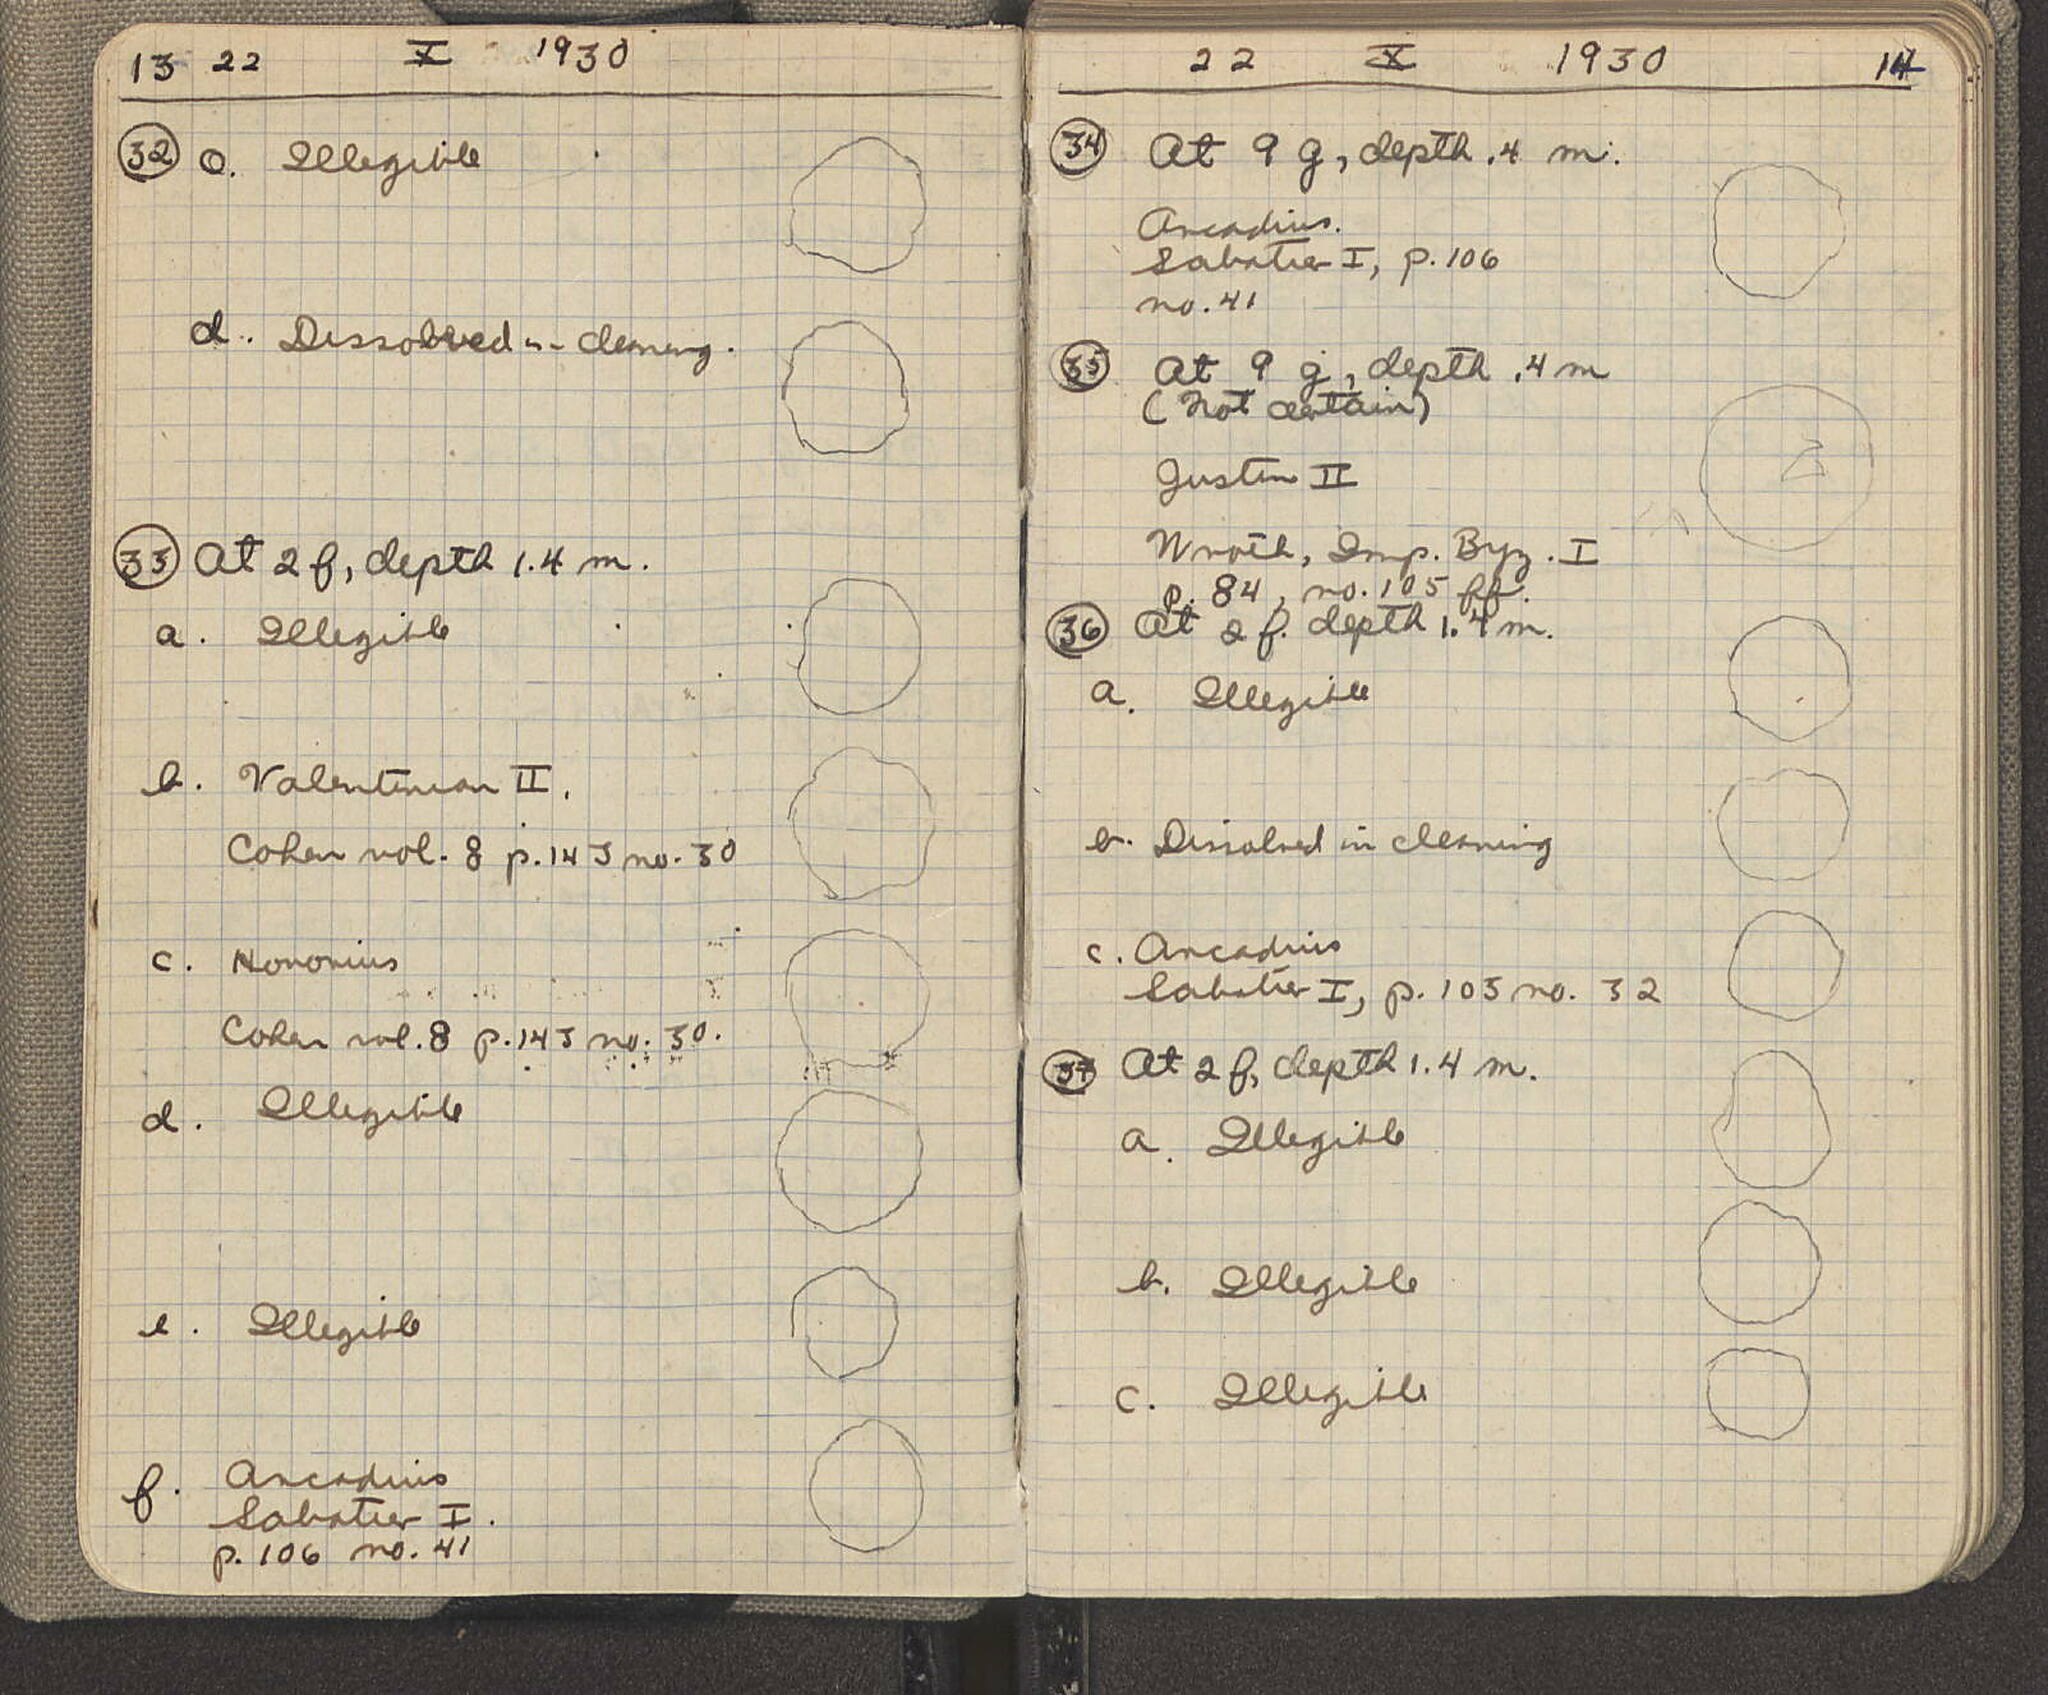 13 22 X 1930
32 c. Illegible
d. Dissolved in cleaning.
33 At 2 f, depth 1.4 m.
a. Illegible
b. Valentinian II.
Cohen vol. 8 p. 143 no. 30
c. Honorius
Cohen vol. 8 p. 143 no. 30.
d. Illegible
e. Illegible
f. Arcadius
Sabatier I.
p. 106 no. 41
22 X 1930 14
34 At 9 g, depth .4 m.
Arcadius.
Sabatier I, p. 106
no. 41
35 At 9 g, depth .4 m
(Not certain)
Justin II
Wroth, Imp. Byz. I
p. 84, no. 105 ff.
36 At 2 f. depth 1.4 m.
a. Illegible
b. Dissolved in cleaning
c. Arcadius
Sabatier I, p. 105 no. 32
37 At 2 f, depth 1.4 m.
a. Illegible
b. Illegible
c. Illegible